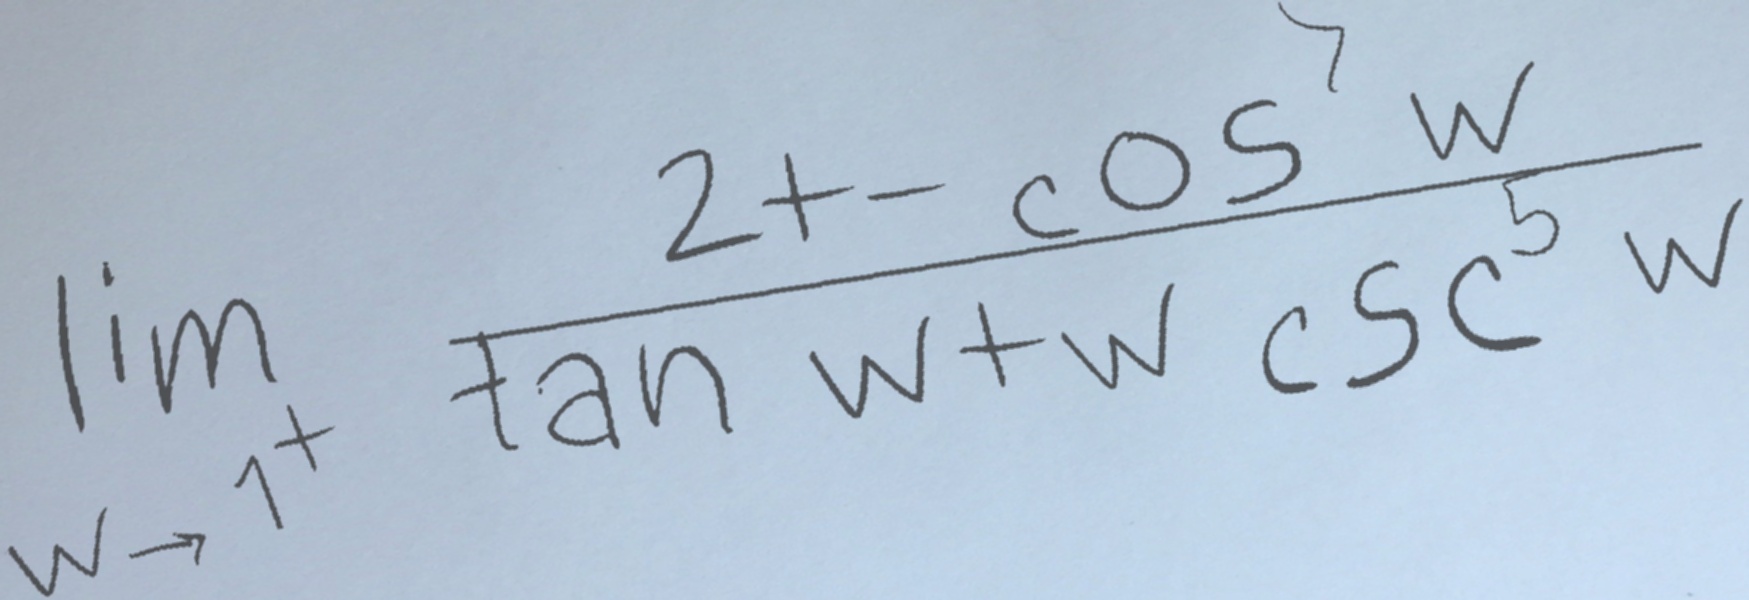 lim_{w→1^+} \frac{2+-cos^7 w}{tan w+w csc^5 w}